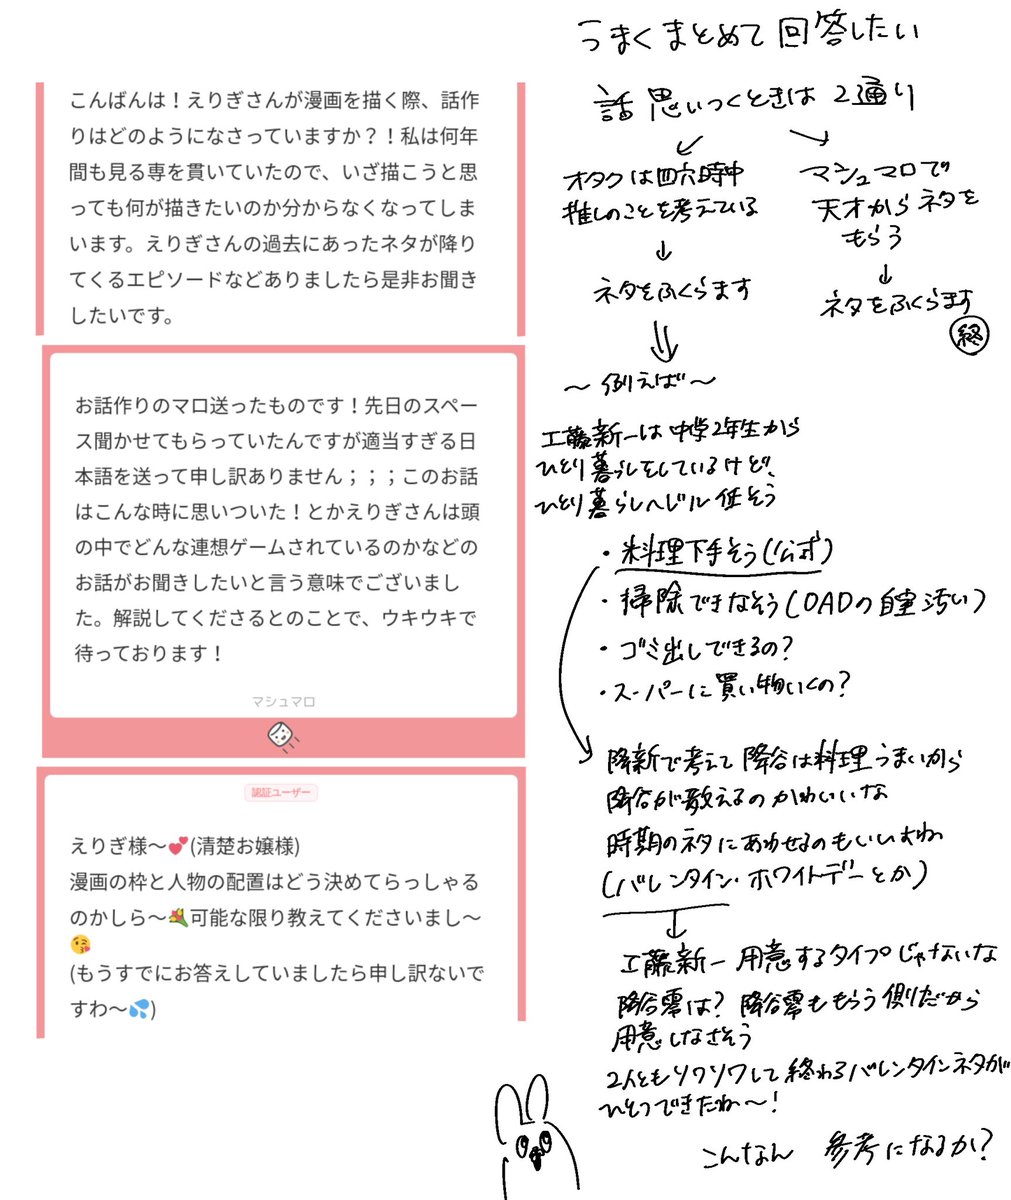 こんばんは！えりぎさんが漫画を描く際、話作
りはどのようになさっていますか？！私は何年
間も見る専を貫いていたので、いざ描こうと思
っても何が描きたいのか分からなくなってしま
います。えりぎさんの過去にあったネタが降り
てくるエピソードなどありましたら是非お聞き
したいです。
お話作りのマロ送ったものです！先日のスペー
ス聞かせてもらっていたんですが適当すぎる日
本語を送って申し訳ありません；；；このお話
はこんな時に思いついた！とかえりぎさんは頭
の中でどんな連想ゲームされているのかなどの
お話がお聞きしたいと言う意味でございまし
た。解説してくださるとのことで、ウキウキで
待っております！
マシュマロ
認証ユーザー
えりぎ様〜💕(清楚お嬢様)
漫画の枠と人物の配置はどう決めてらっしゃる
のかしら〜💐可能な限り教えてくださいまし〜
😘
(もうすでにお答えしていましたら申し訳ないで
すわ〜💦)
うまくまとめて回答したい
話思いつくときは2通り
オタクは四六時中
推しのことを考えている
↓
ネタをふくらます
マシュマロで
天才からネタを
もらう
↓
ネタをふくらます
終
〜例えば〜
工藤新一は中学2年生から
ひとり暮らしをしているけど、
ひとり暮らしレベル低そう
・料理下手そう(公式)
・掃除できなそう(OADの自室汚い)
・ゴミ出しできるの?
・スーパーに買い物いくの?
降新で考えて降谷は料理うまいから
降谷が教えるのかわいいな
時期のネタにあわせるのもいいよね
(バレンタイン・ホワイトデーとか)
↓
工藤新一用意するタイプじゃないな
降谷零は?降谷零ももらう側だから
用意しなさそう
2人ともソワソワして終わるバレンタインネタが
ひとつできたね〜!
こんなん参考になるか?